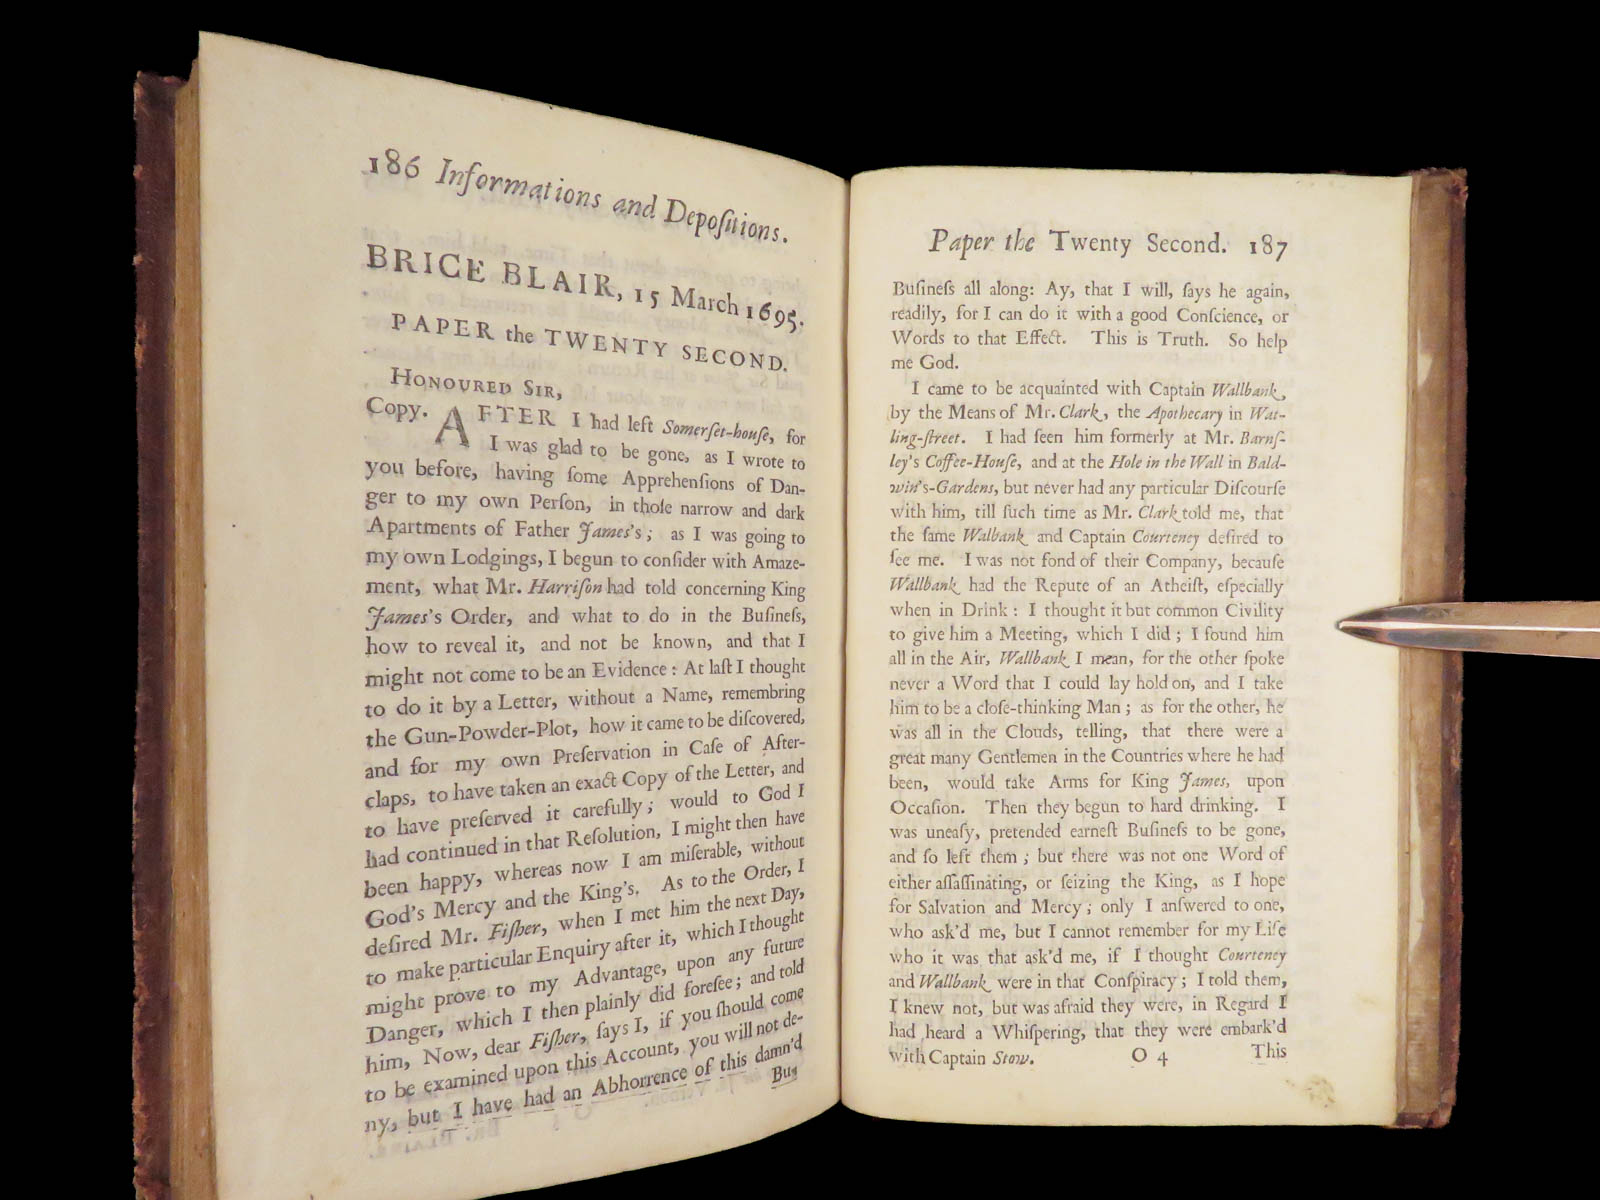 186 Informations and Depoſitions.
BRICE BLAIR, 15 March 1695.
PAPER the TWENTY SECOND.
HONOURED SIR,
Copy. AFTER I had left Somerſet-houſe, for
I was glad to be gone, as I wrote to
you before, having ſome Apprehenſions of Dan-
ger to my own Perſon, in thoſe narrow and dark
Apartments of Father James's; as I was going to
my own Lodgings, I begun to conſider with Amaze-
ment, what Mr. Harriſon had told concerning King
James's Order, and what to do in the Buſineſs,
how to reveal it, and not be known, and that I
might not come to be an Evidence: At laſt I thought
to do it by a Letter, without a Name, remembring
the Gun-Powder-Plot, how it came to be diſcovered,
and for my own Preſervation in Caſe of After-
claps, to have taken an exact Copy of the Letter, and
to have preſerved it carefully; would to God I
had continued in that Reſolution, I might then have
been happy, whereas now I am miſerable, without
God's Mercy and the King's. As to the Order, I
deſired Mr. Fiſher, when I met him the next Day,
to make particular Enquiry after it, which I thought
might prove to my Advantage, upon any future
Danger, which I then plainly did foreſee; and told
him, Now, dear Fiſher, ſays I, if you ſhould come
to be examined upon this Account, you will not de-
ny, but I have had an Abhorrence of this damn'd
Buſ
Paper the Twenty Second. 187
Buſineſs all along: Ay, that I will, ſays he again,
readily, for I can do it with a good Conſcience, or
Words to that Effect. This is Truth. So help
me God.
I came to be acquainted with Captain Wallbank,
by the Means of Mr. Clark, the Apothecary in Wat-
ling-ſtreet. I had ſeen him formerly at Mr. Barnſ-
ley's Coffee-Houſe, and at the Hole in the Wall in Bald-
win's-Gardens, but never had any particular Diſcourſe
with him, till ſuch time as Mr. Clark told me, that
the ſame Walbank and Captain Courteney deſired to
ſee me. I was not fond of their Company, becauſe
Wallbank had the Repute of an Atheiſt, eſpecially
when in Drink: I thought it but common Civility
to give him a Meeting, which I did; I found him
all in the Air, Wallbank I mean, for the other ſpoke
never a Word that I could lay hold on, and I take
him to be a cloſe-thinking Man; as for the other, he
was all in the Clouds, telling, that there were a
great many Gentlemen in the Countries where he had
been, would take Arms for King James, upon
Occaſion. Then they begun to hard drinking. I
was uneaſy, pretended earneſt Buſineſs to be gone,
and ſo left them; but there was not one Word of
either aſſaſſinating, or ſeizing the King, as I hope
for Salvation and Mercy; only I anſwered to one,
who ask'd me, but I cannot remember for my Life
who it was that ask'd me, if I thought Courteney
and Wallbank were in that Conſpiracy; I told them,
I knew not, but was afraid they were, in Regard I
had heard a Whiſpering, that they were embark'd
with Captain Stow. O 4 This